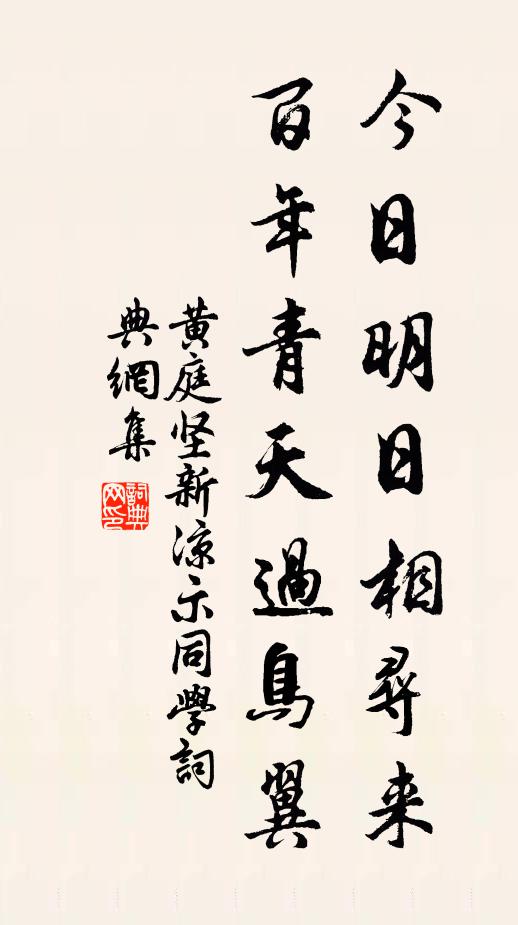 今日明日相尋来
百年青天過鳥翼
黄庭坚新涼示同學詞
典網集
詞典
网印